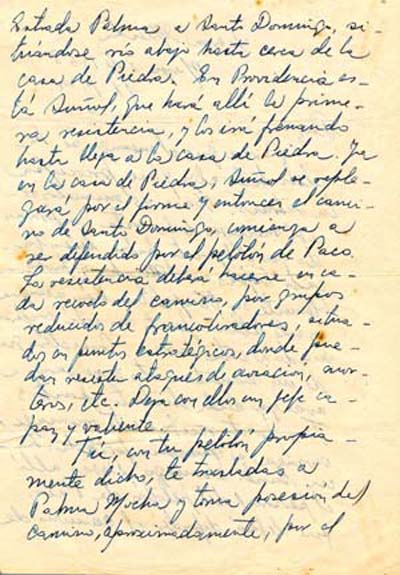 Estrada Palma a Santo Domingo, si-
tuándose río abajo hasta cerca de la
casa de Piedra. En Providencia es-
tá Suñol, que hará allí la prime-
ra resistencia, y los irá frenando
hasta llega a la casa de Piedra. Ya
en la casa de Piedra, Suñol se reple-
gará por el firme y entonces el cami-
no de Santo Domingo, comienza a
ser defendido por el pelotón de Paco.
La resistencia deberá hacerse en ca-
da recodo del camino, por grupos
reducidos de francotiradores, situa-
dos en puntos estratégicos, donde pue-
dan resistir ataques de aviación, mor-
teros, etc. Deja con ellos un jefe ca-
paz y valiente.
Tú, con tu pelotón propia-
mente dicho, te trasladas a
Palma Mocha y toma posesión del
camino, aproximadamente, por el